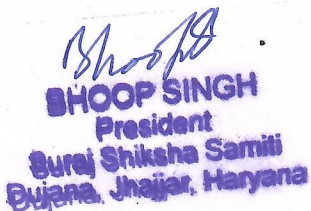 Bhoop S
BHOOP SINGH
President
Suraj Shiksha Samiti
Dujana, Jhajjar, Haryana